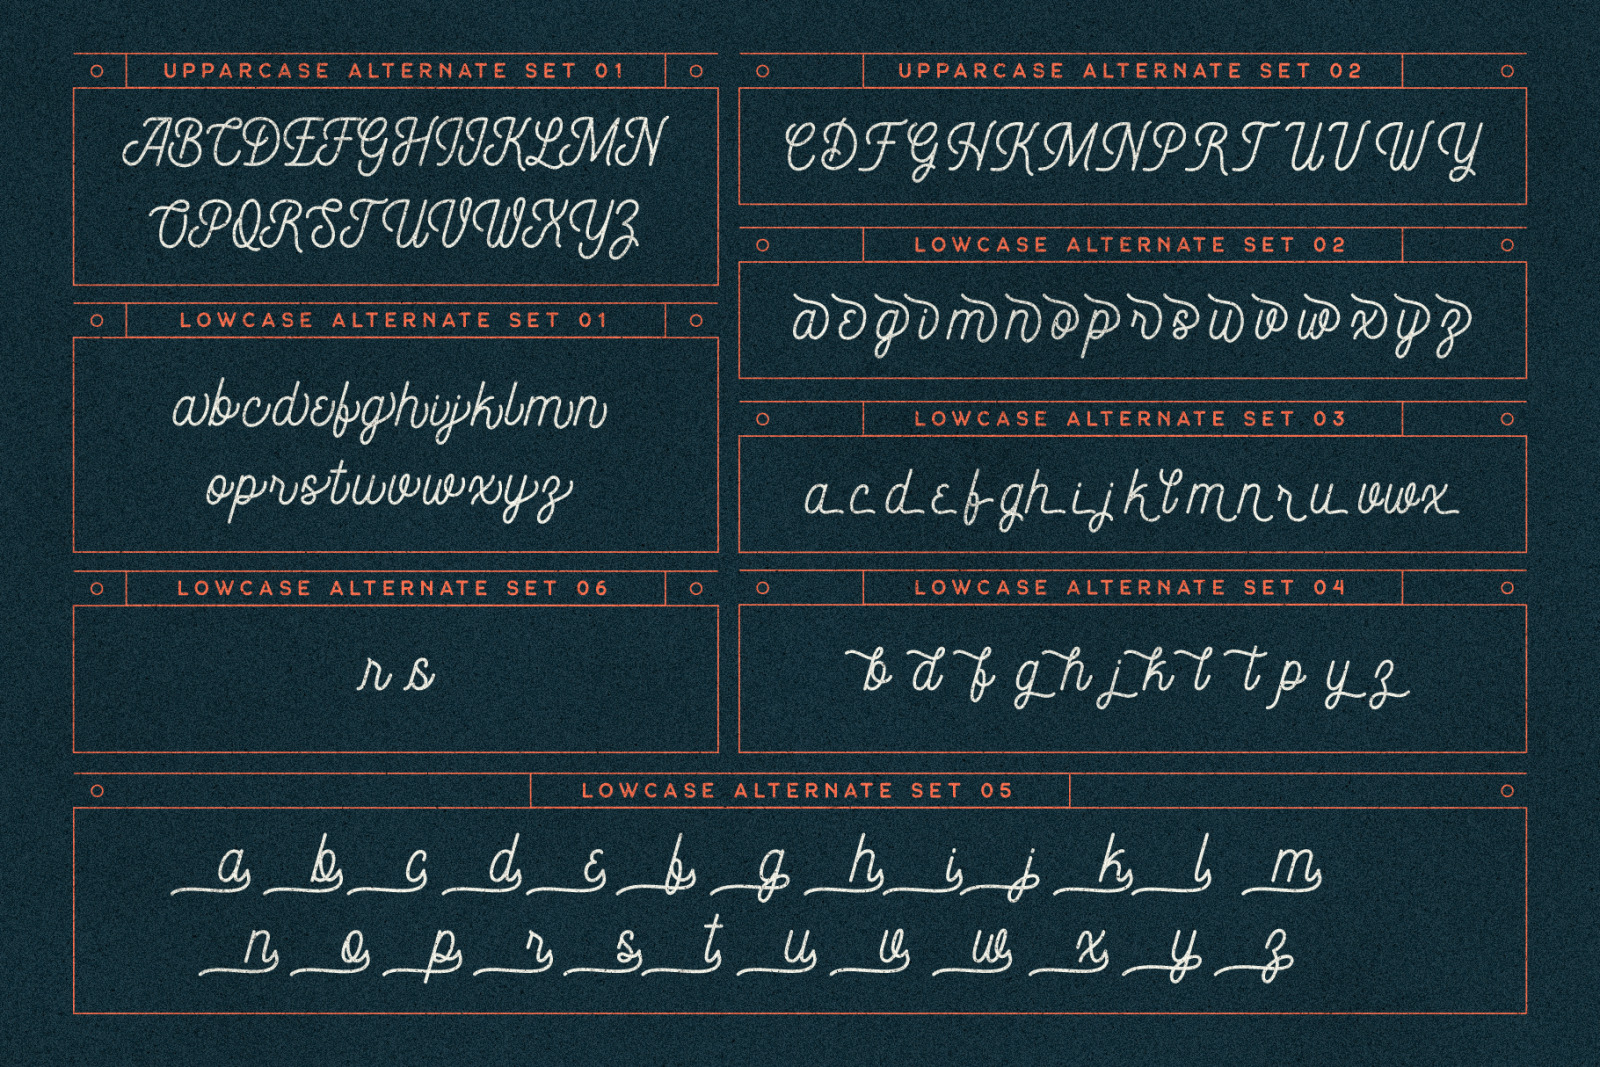 UPPARCASE ALTERNATE SET 01
ABCDEFGHIJKLMN
OPQRSTUVWXYZ
LOWCASE ALTERNATE SET 01
abcdefghijklmn
oprstuvwxyz
LOWCASE ALTERNATE SET 06
rs
UPPARCASE ALTERNATE SET 02
CDFGHKMNPRTUVWY
LOWCASE ALTERNATE SET 02
aegimnoprsuvwxyz
LOWCASE ALTERNATE SET 03
acdefghijklmnruvwx
LOWCASE ALTERNATE SET 04
bdfghjkltpyz
LOWCASE ALTERNATE SET 05
a b c d e f g h i j k l m
n o p r s t u v w x y z